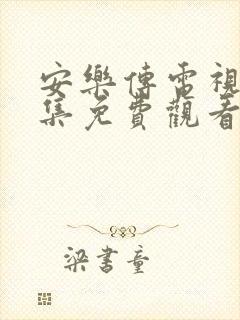 安樂傳電視
集免費觀看
梁書童